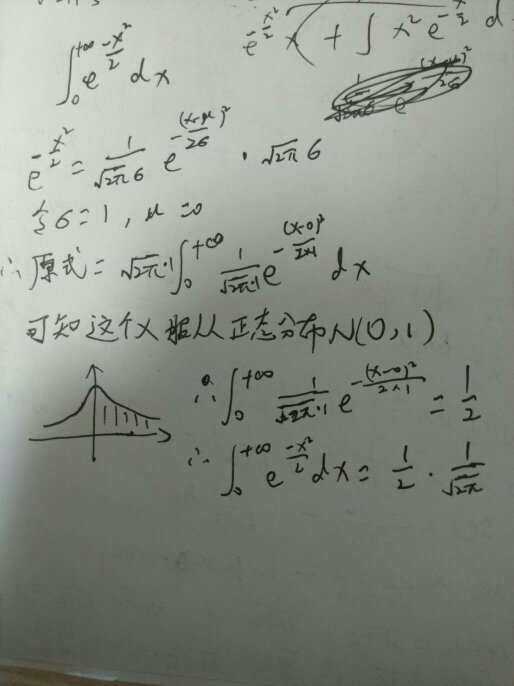 e^{-\frac{x^2}{2}} x ( + ∫ x^2 e^{-\frac{x}{2}} d
∫_0^{+∞} e^{-\frac{x^2}{2}} dx
e^{-\frac{x^2}{2}} = \frac{1}{\sqrt{2π}σ} e^{-\frac{(x-μ)^2}{2σ}} · \sqrt{2π}σ
令σ=1, μ=0
∴原式= \sqrt{2π}·1 ∫_0^{+∞} \frac{1}{\sqrt{2π}·1} e^{-\frac{(x-0)^2}{2×1}} dx
可知这个X服从正态分布N(0,1)
∴ ∫_0^{+∞} \frac{1}{\sqrt{2π}·1} e^{-\frac{(x-0)^2}{2×1}} = \frac{1}{2}
∴ ∫_0^{+∞} e^{-\frac{x^2}{2}} dx = \frac{1}{2} · \frac{1}{\sqrt{2π}}